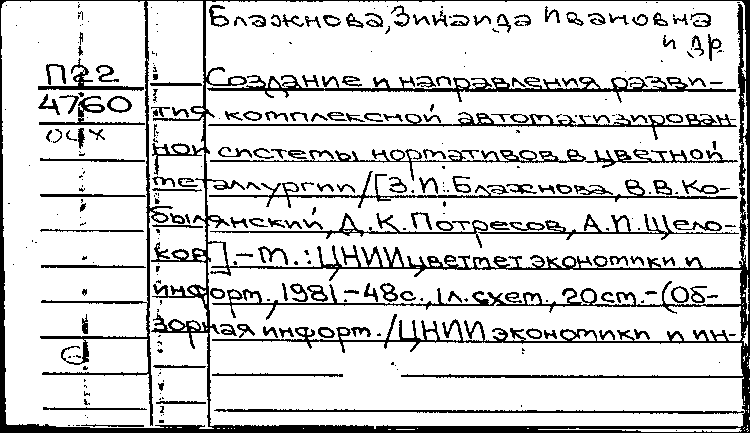 Блажнова, Зинаида Ивановна
и др.
П22
4760
Создание и направления разви-
тия комплексной автоматизирован
ной системы нормативов в цветной
металлургии / [З.И. Блажнова, В.В. Ко-
былянский, Д.К. Потресов, А.И. Щело-
ков]. - М.: ЦНИИцветмет экономики и
информ., 1981. - 48с., 1л. схем, 20см. - (Об-
зорная информ. / ЦНИИ экономики и ин-